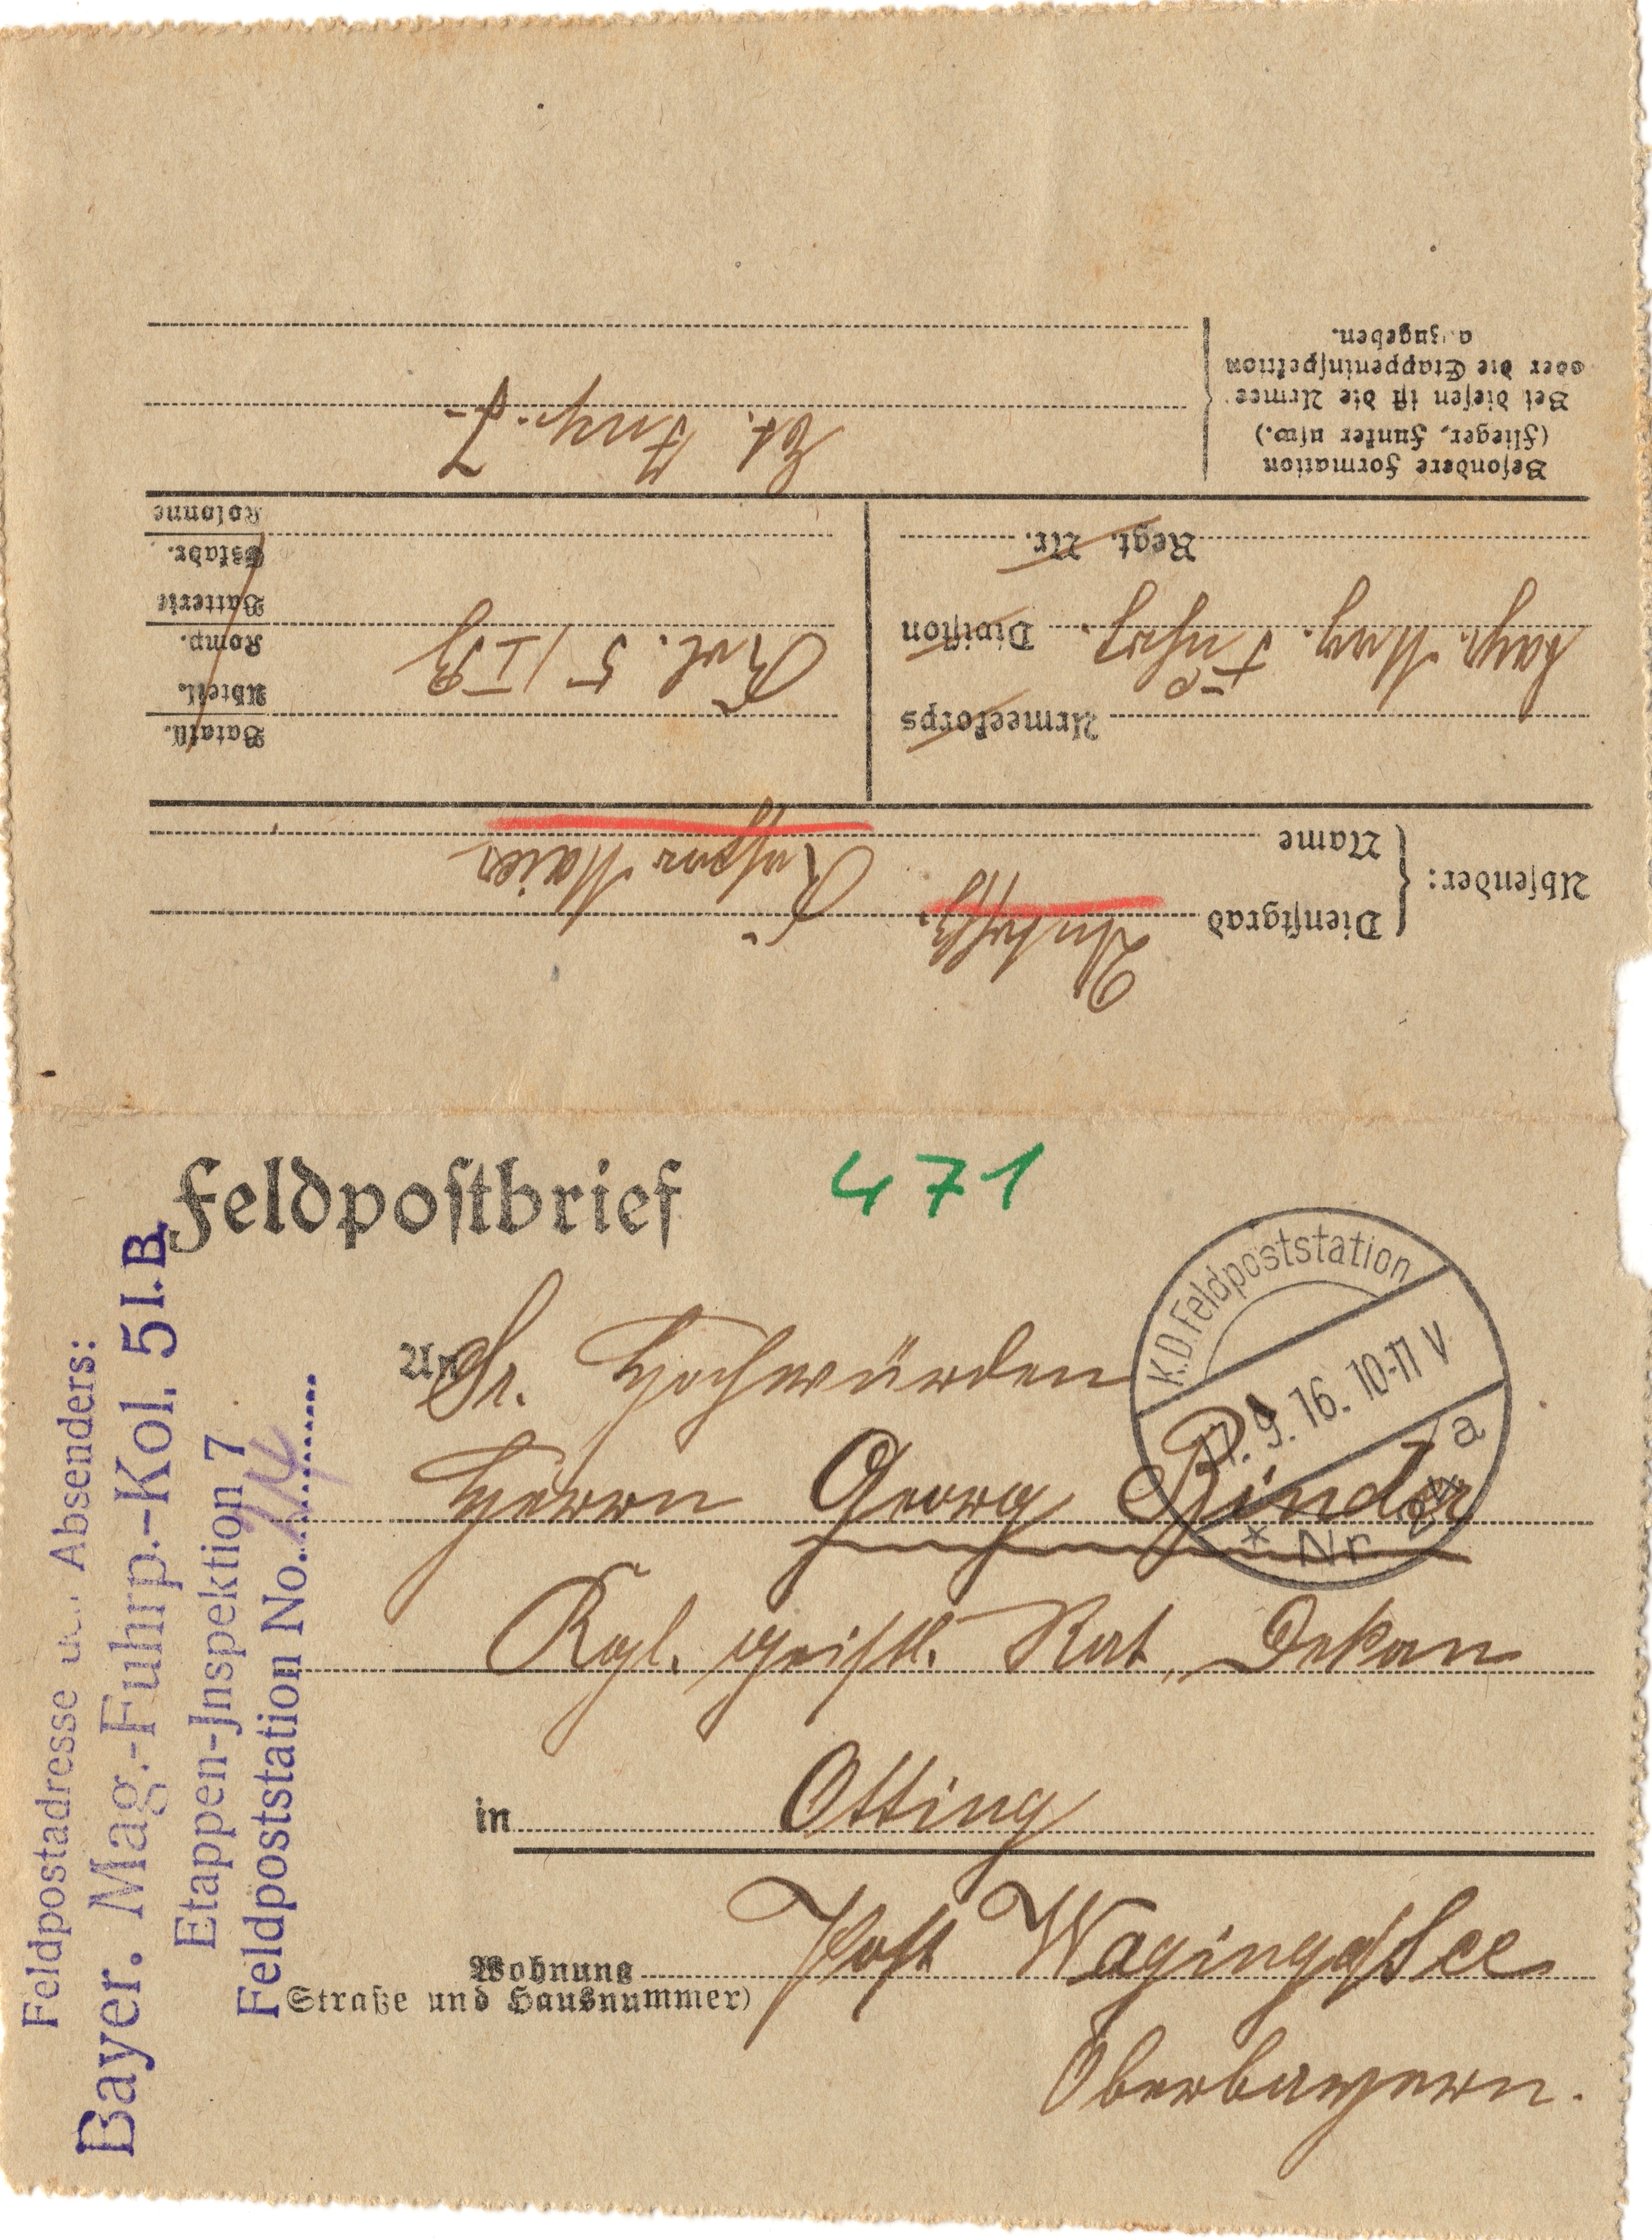 Feldpostbrief
471
K.D.Feldpoststation
9. 16. 10-11 V
a
* Nr
An Sr. Hochwürden
Herrn Georg Binder
Kgl. geistl. Rat, Dekan
in Otting
Post Waging a/See
Wohnung
Straße und Hausnummer)
Oberbayern.
Feldpostadresse Absenders:
Bayer. Mag.-Fuhrp.-Kol. 5 I. B.
Etappen-Jnspektion 7
Feldpoststation No.
Absender:
Dienstgrad Untffz.
Name Kaspar Maier
Armeekorps
bayr. Mag. Fuhrp. Division
Regt. Nr.
Bataill.
Abteil.
Komp.
Batterie
Eskadr.
Kolonne
Kol. 5 / I B
Besondere Formation
(Flieger, Funker usw.)
Bei diesen ist die Armee
oder die Etappeninspektion
anzugeben.
Et. Insp. 7